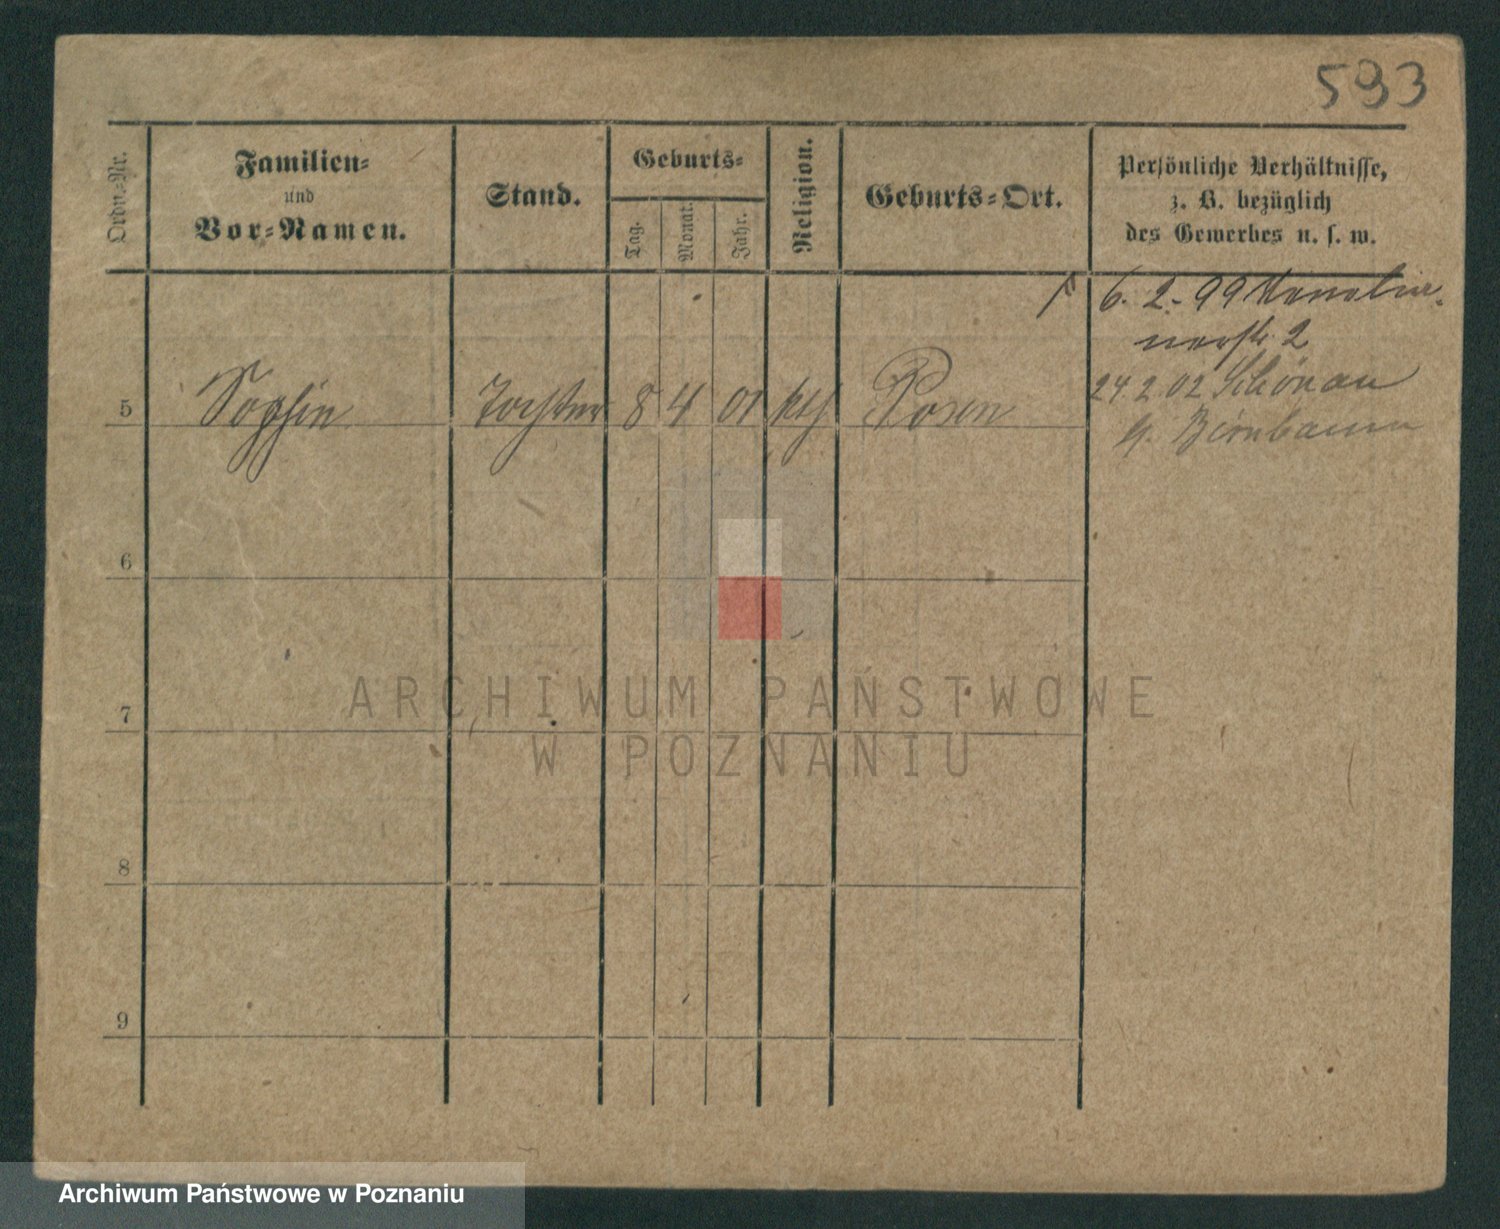 593
Ordn.-Nr.
Familien-
und
Vor-Namen.
Stand.
Geburts-
Tag.
Monat.
Jahr.
Religion.
Geburts-Ort.
Persönliche Verhältnisse,
z. B. bezüglich
des Gewerbes u. s. w.
6. 2. 99
2
5 Sophie Tochter 8 4 01 kth Posen
24 2 02 Schönau
Birnbaum
6
7
8
9
ARCHIWUM PAŃSTWOWE
W POZNANIU
Archiwum Państwowe w Poznaniu